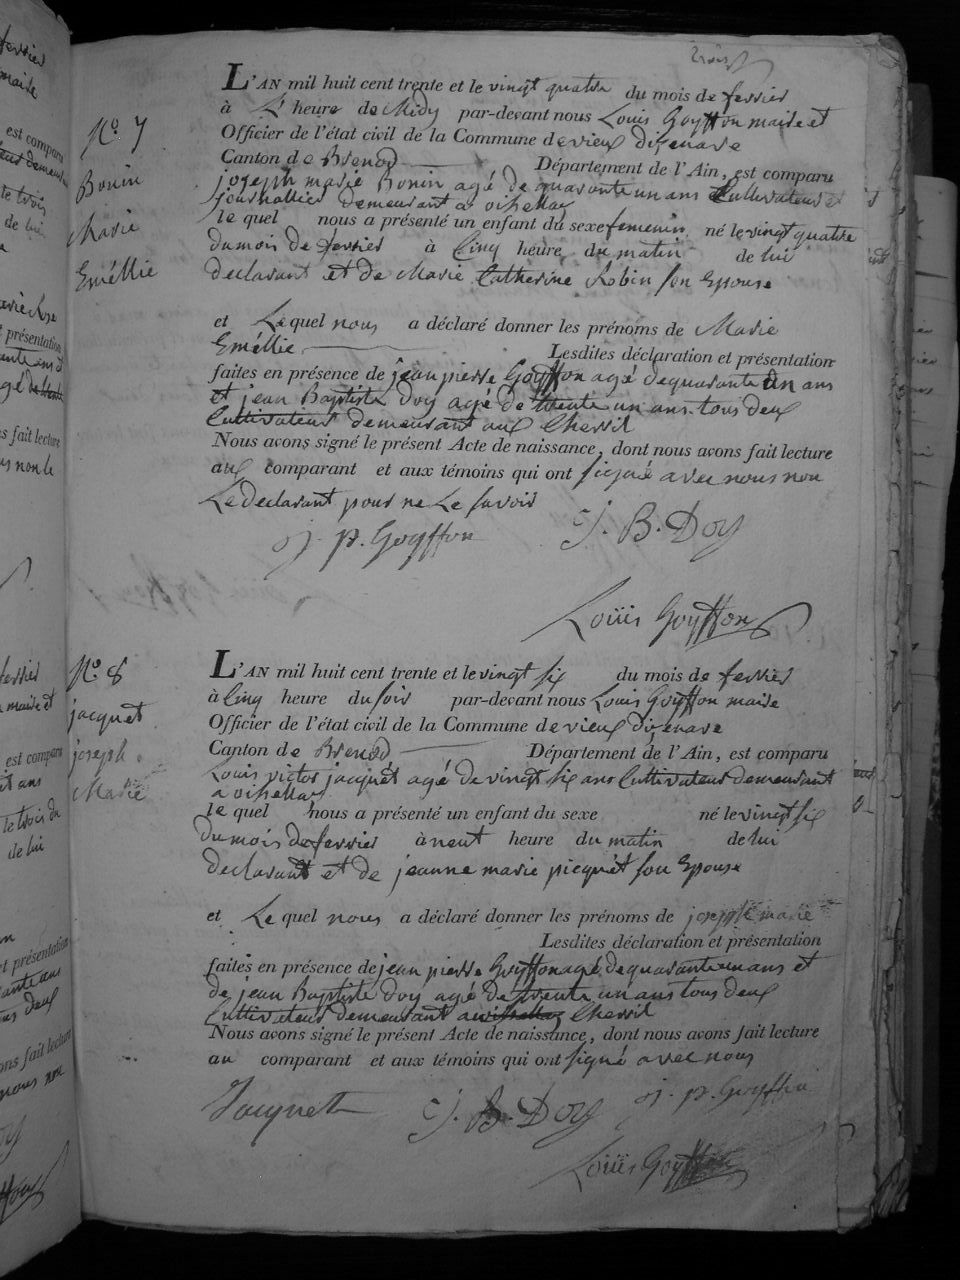 trois
L'AN mil huit cent trente et le vingt quatre du mois de fevrier
à L'heure de Midy par-devant nous Louis Goyffon maire et
Officier de l'état civil de la Commune de vieux disenave
Canton de Brenod Département de l'Ain, est comparu
joseph marie Bonin agé de quarante un ans Cultivateur et
journallier demeurant a oisellaz
le quel nous a présenté un enfant du sexe femenin né le vingt quatre
du mois de fevrier à Cinq heure du matin de lui
declarant et de Marie Catherine Robin son Epouse
et Lequel nous a déclaré donner les prénoms de Marie
Eméllie Lesdites déclaration et présentation
faites en présence de jean pierre Goyffon agé de quarante un ans
et jean Baptiste Doy agé de trente un ans tous deux
Cultivateur demeurant aux Chevril
Nous avons signé le présent Acte de naissance, dont nous avons fait lecture
aux comparant et aux témoins qui ont signé avec nous non
Le declarant pour ne Le savoir
j. p. Goyffon J. B. Doy
Louis Goyffon
N.o 7
Bonin
Marie
Eméllie
L'AN mil huit cent trente et le vingt six du mois de fevrier
à Cinq heure du soir par-devant nous Louis Goyffon maire
Officier de l'état civil de la Commune de vieux disenave
Canton de Brenod Département de l'Ain, est comparu
Louis victor jacquet agé de vingt six ans Cultivateur demeurant
a oisellaz
le quel nous a présenté un enfant du sexe né le vingt six
du mois de fevrier à neuf heure du matin de lui
declarant et de jeanne marie picquet son Epouse
et Le quel nous a déclaré donner les prénoms de joseph marie
Lesdites déclaration et présentation
faites en présence de jean pierre Goyffon agé de quarante un ans et
de jean Baptiste Doy agé de trente un ans tous deux
Cultivateur demeurant a Chevril
Nous avons signé le présent Acte de naissance, dont nous avons fait lecture
au comparant et aux témoins qui ont signé avec nous
Jacquet J. B. Doy j. p. Goyffon
Louis Goyffon
N.o 8
jacquet
joseph
Marie